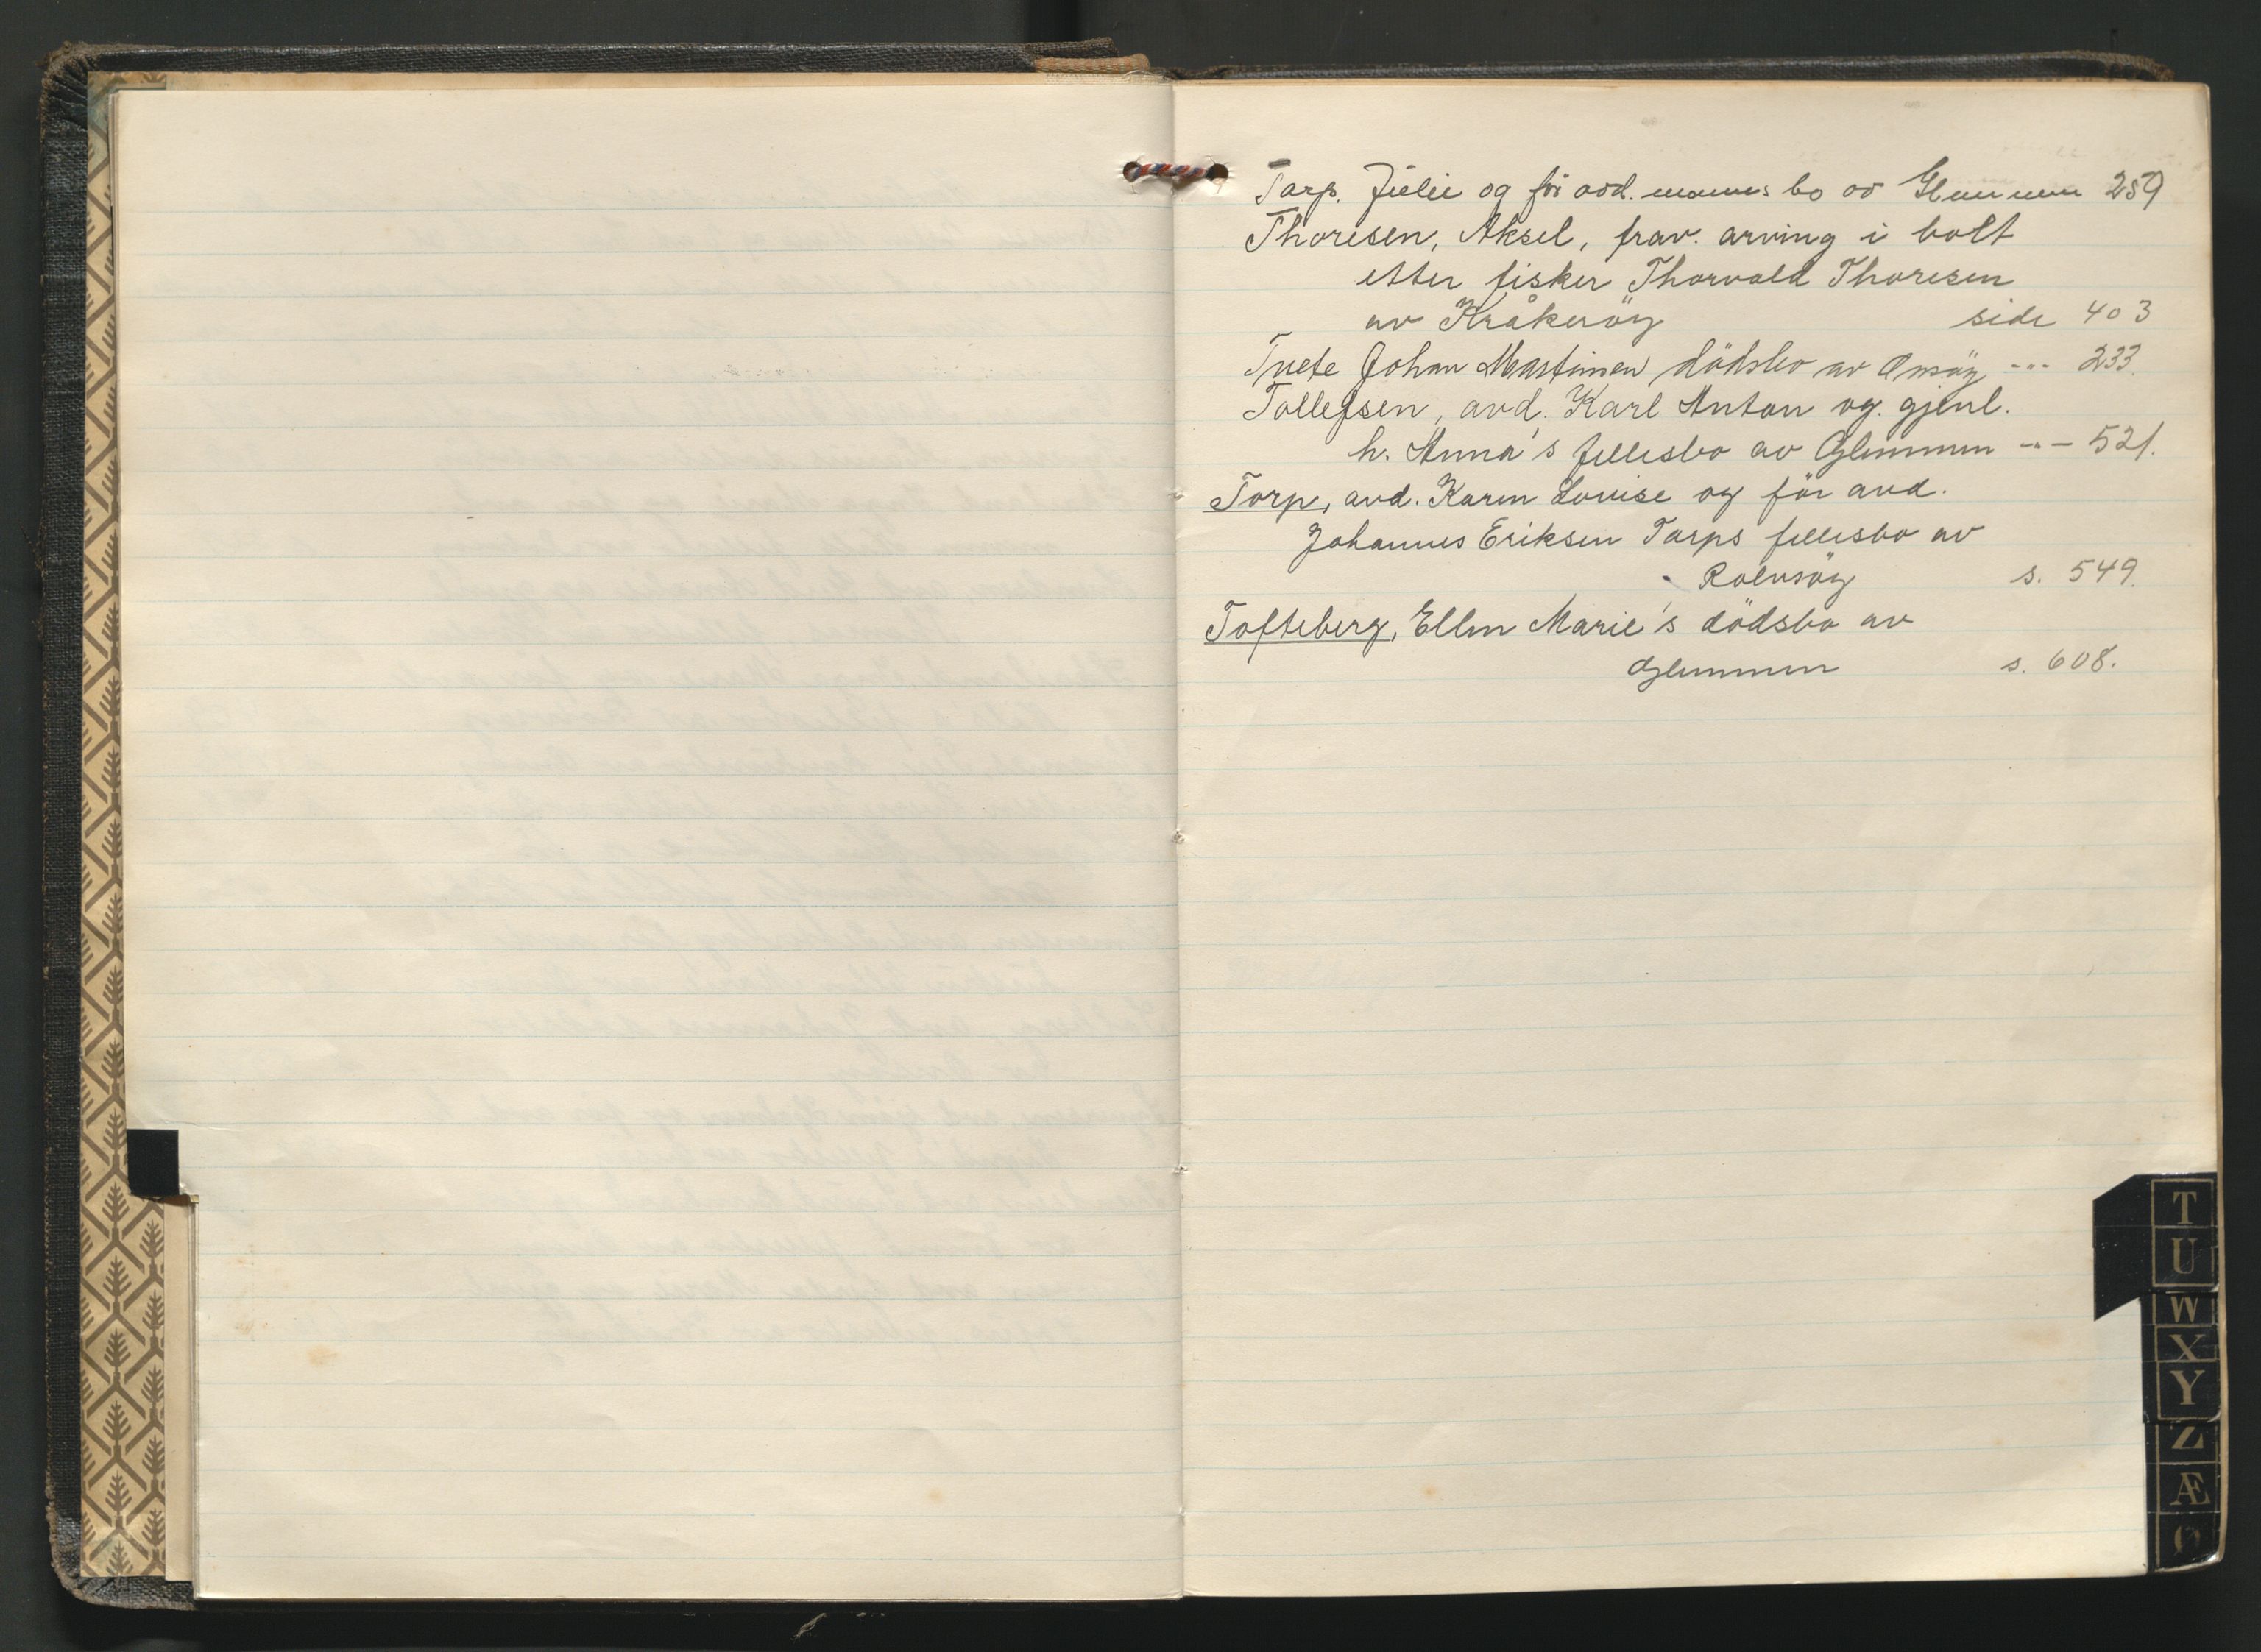 Torp. Julie og før avd. manns bo av Glemmen 259
Thoresen, Aksel, frav. arving i bolt
etter fisker Thorvald Thoresen
av Kråkerøy side 403
Tvete Johan Martinsen dödsbo av Onsöy -"- 233.
Tollefsen, avd. Karl Anton og gjenl.
h. Anna's fellesbo av Glemmen -"- 521.
Torp, avd. Karen Louise og før avd.
Johannes Eriksen Torps fellesbo av
Rolvsöy s. 549.
Tofteberg, Ellen Marie's dödsbo av
Glemmen s. 608.
T
U
W
X
Y
Z
Æ
Ø